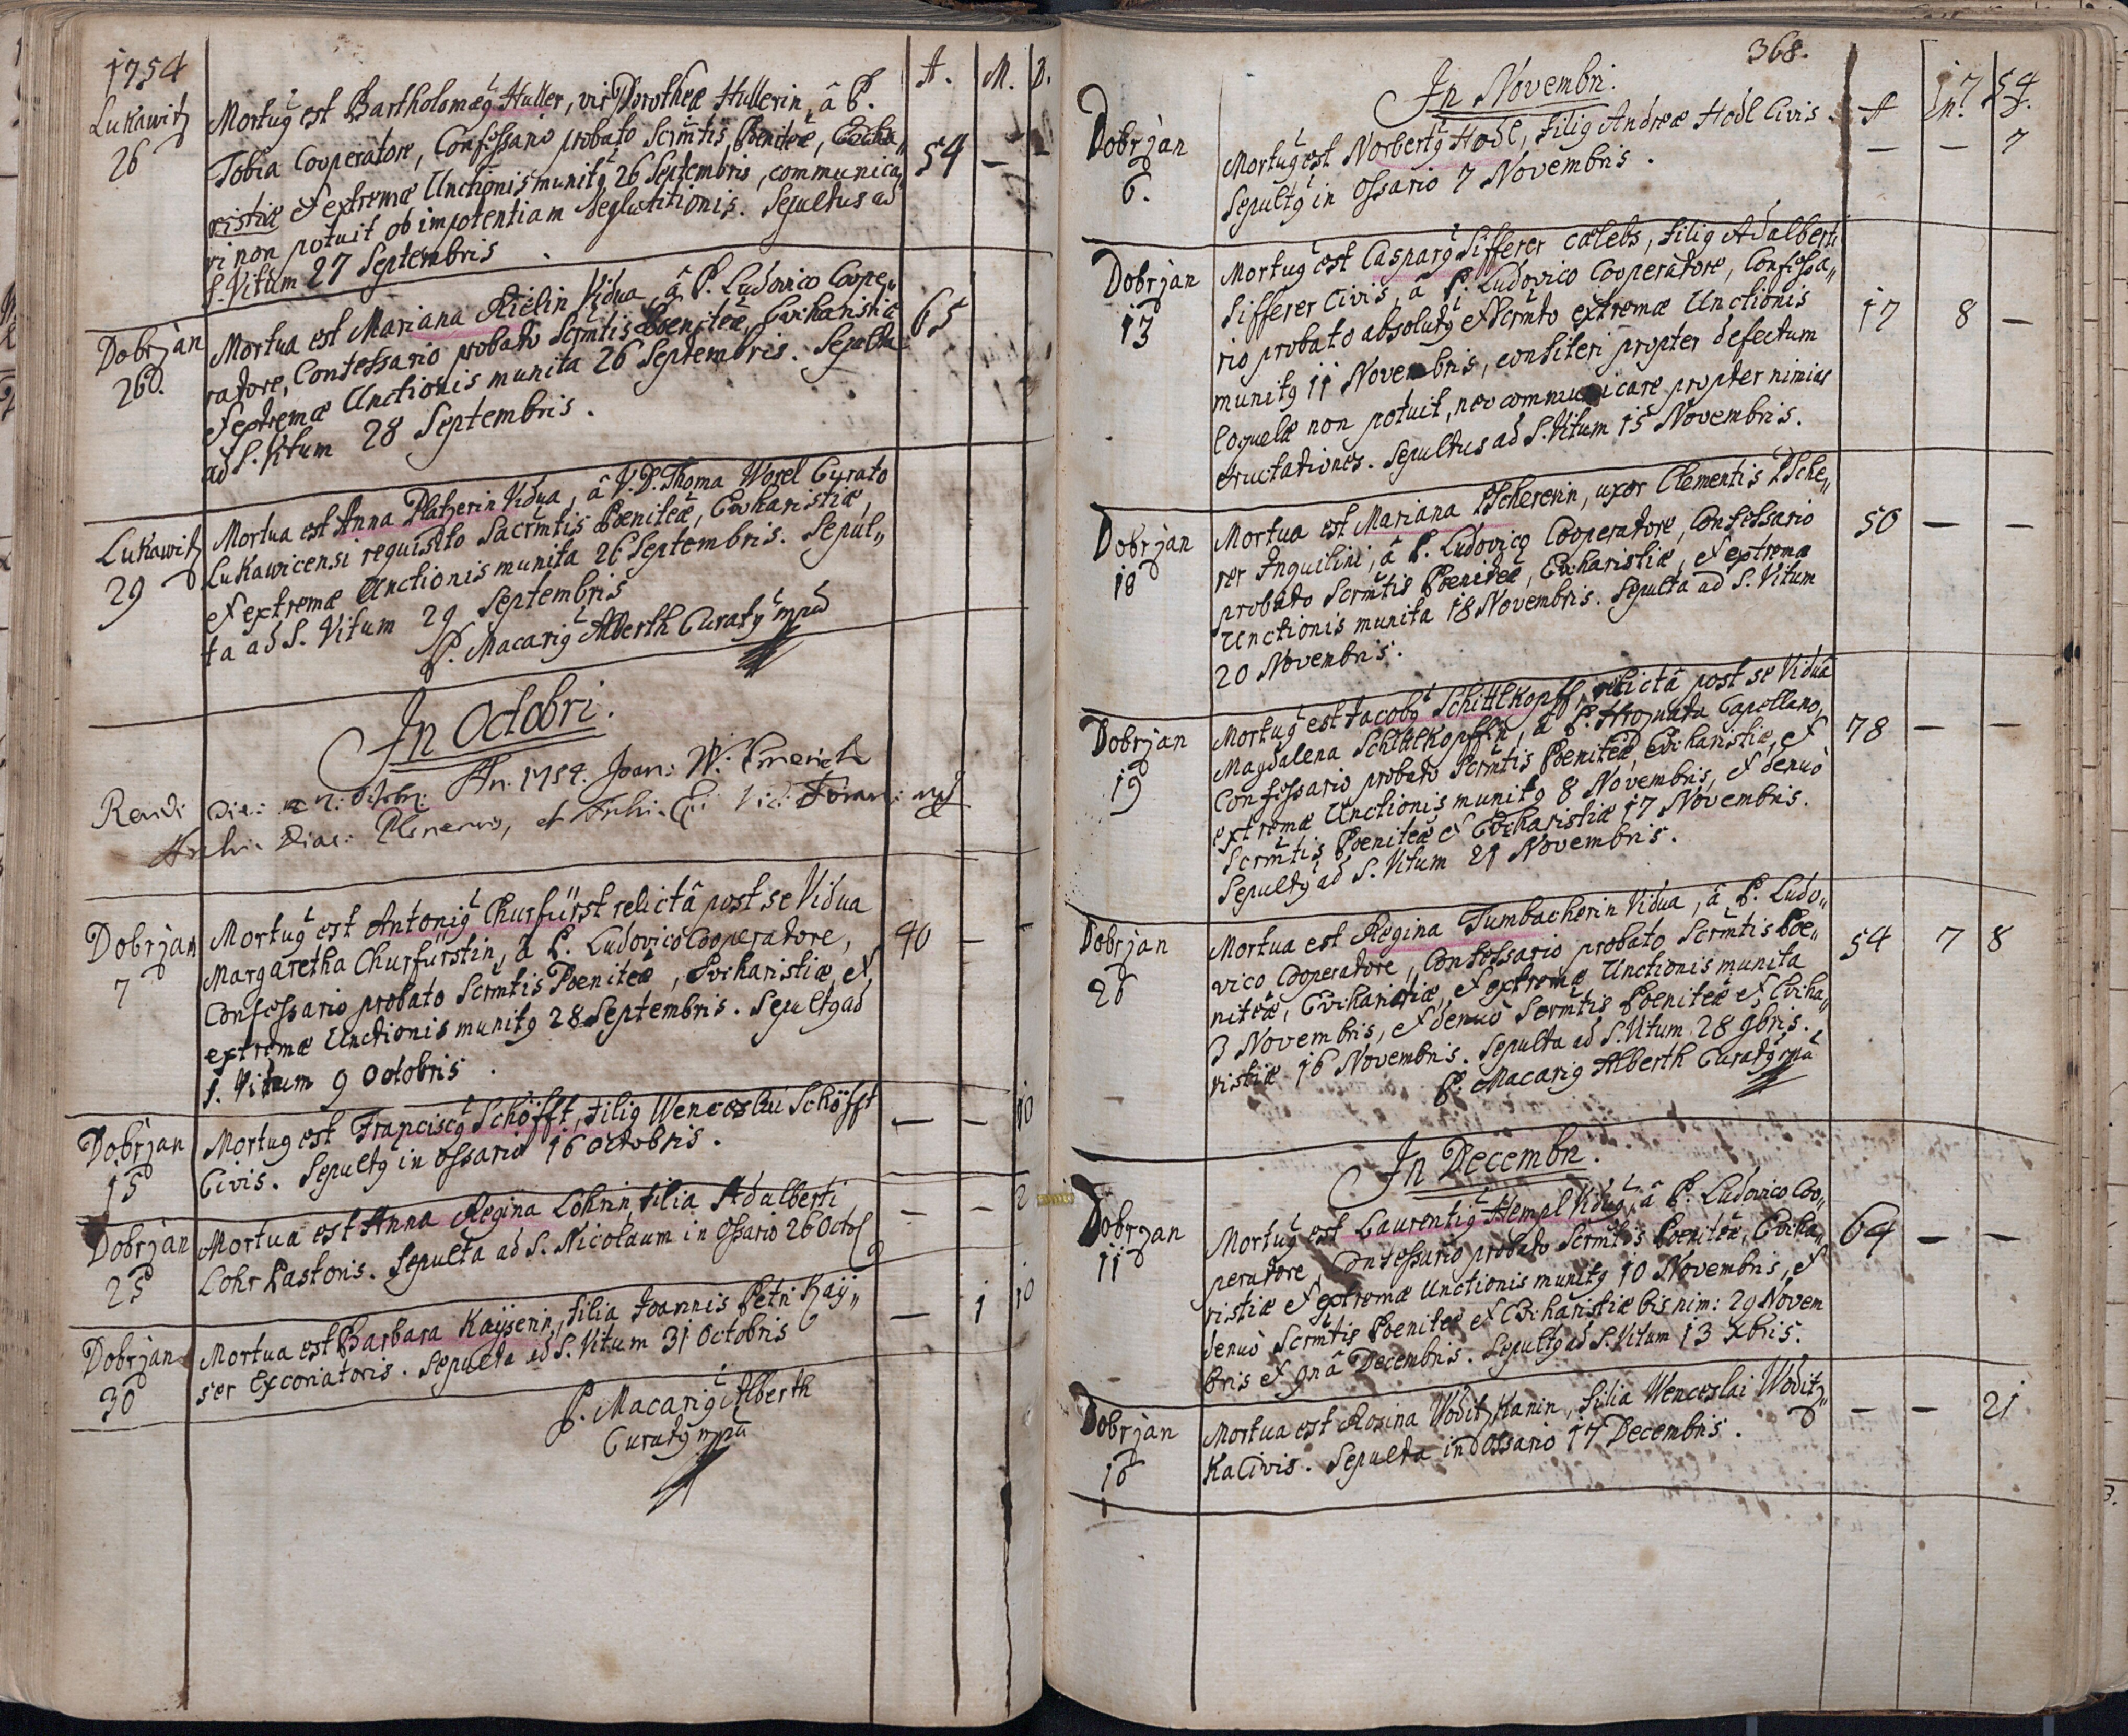 1754 A. M. D.
Lukawitz
26
Mortuꝯ est Bartholomæꝯ Huller, vir Dorotheæ Hullerin, â P.
Tobia Cooperatore, Confessario probato Scrm̃tis Pœniteæ, Eucha„
ristiæ et extremæ Unctionis munitꝯ 26 Septembris, communica„ 54 — —
ri non potuit ob impotentiam deglutitionis. Sepultus ad
S. Vitum 27 Septembris .
Dobrzan
26.
Mortua est Mariana Rielin Vidua, â P. Ludovico Coope„
ratore, Confessario probato Scrm̃tis Pœniteæ, Eucharistiæ 65
et extremæ Unctionis munita 26 Septembris. Sepulta
ad S. Vitum 28 Septembris .
Lukawitz
29
Mortua est Anna Platzerin Vidua, â V. D. Thoma Worel Curato
Lukawicensi requisito Sacrm̃tis Pœniteæ, Eucharistiæ,
et extremæ Unctionis munita 26 Septembris. Sepul„
ta ad S. Vitum 29 Septembris
P. Macariꝯ Alberth Curatꝯ mpa
In Octobri.
Die: Octobr: An. 1754. Joan: W.
Archi: Diac: et
Dobrzan
7
Mortuꝯ est Antoniꝯ Churfürst relictâ post se Vidua
Margaretha Churfürstin, â P. Ludovico Cooperatore, 40 — —
Confessario probato Scrm̃tis Pœniteæ, Eucharistiæ, et
extremæ Unctionis munitꝯ 28 Septembris. Sepultꝯ ad
S. Vitum 9 Octobris .
Dobrzan
15
Mortuꝯ est Franciscꝯ Schöfft, filiꝯ Wenceslai Schöfft — — 10
Civis. Sepultꝯ in ossario 16 Octobris .
Dobrzan
25
Mortua est Anna Regina Lohrin filia Adalberti — — 2
Lohr Pastoris. Sepulta ad S. Nicolaum in Ossario 26 Octob
Dobrzan
30
Mortua est Barbara Kaÿserin, filia Joannis Petri Kaÿ„ — 1 10
ser Excoriatoris. Sepulta ad S. Vitum 31 Octobris
P. Macariꝯ Alberth
Curatꝯ mpa
368.
In Novembri. A M. D.
1754
Dobrzan
6.
Mortuꝯ est Norbertꝯ Hodl, filiꝯ Andreæ Hodl Civis. — — 7
Sepultꝯ in Ossario 7 Novembris .
Dobrzan
13
Mortuꝯ est Casparꝯ Sifferer cælebs, filiꝯ Adalberti
Sifferer Civis, â P. Ludovico Cooperatore, Confessa„
rio probato absolutꝯ et Scrm̃to extremæ Unctionis 17 8 —
munitꝯ 11 Novembris, confiteri propter defectum
loquelæ non potuit, nec communicare propter nimias
eructationes. Sepultus ad S. Vitum 15 Novembris.
Dobrzan
18
Mortua est Mariana Tscherерin, uxor Clementis Tsche„
rer Inquilini, â P. Ludovico Cooperatore, Confessario 50 — —
probato Scrm̃tis Pœniteæ, Eucharistiæ, et extremæ
Unctionis munita 18 Novembris. Sepulta ad S. Vitum
20 Novembris.
Dobrzan
19
Mortuꝯ est Jacobꝯ Schittlkopff, relictâ post se Viduâ
Magdalena Schittlkopffin, â P. Hroznata Capellano, 78 — —
Confessario probato Scrm̃tis Pœniteæ, Eucharistiæ, et
extremæ Unctionis munitꝯ 8 Novembris, et denuò
Scrm̃tis Pœniteæ et Eucharistiæ 17 Novembris.
Sepultꝯ ad S. Vitum 21 Novembris.
Dobrzan
26
Mortua est Regina Tumbacherin Vidua, â P. Ludo„
vico Cooperatore, Confessario probato Scrm̃tis Pœ„ 54 7 8
niteæ, Eucharistiæ, et extremæ Unctionis munita
3 Novembris, et denuò Scrm̃tis Pœniteæ et Eucha„
ristiæ 16 Novembris. Sepulta ad S. Vitum 28 9bris.
P. Macariꝯ Alberth Curatꝯ mpa
In Decembri.
Dobrzan
11
Mortuꝯ est Laurentiꝯ Hempl Viduꝯ, â P. Ludovico Coo„ 64 — —
peratore Confessario probato Scrm̃tis Pœniteæ, Eucha„
ristiæ et extremæ Unctionis munitꝯ 10 Novembris, et
denuò Scrm̃tis Pœniteæ et Eucharistiæ bis nim: 29 Novem
bris et 9nâ Decembris. Sepultꝯ ad S. Vitum 13 Xbris.
Dobrzan
16
Mortua est Rosina Woditzkanin, filia Wenceslai Woditz„ — — 21
ka Civis. Sepulta in Ossario 17 Decembris.